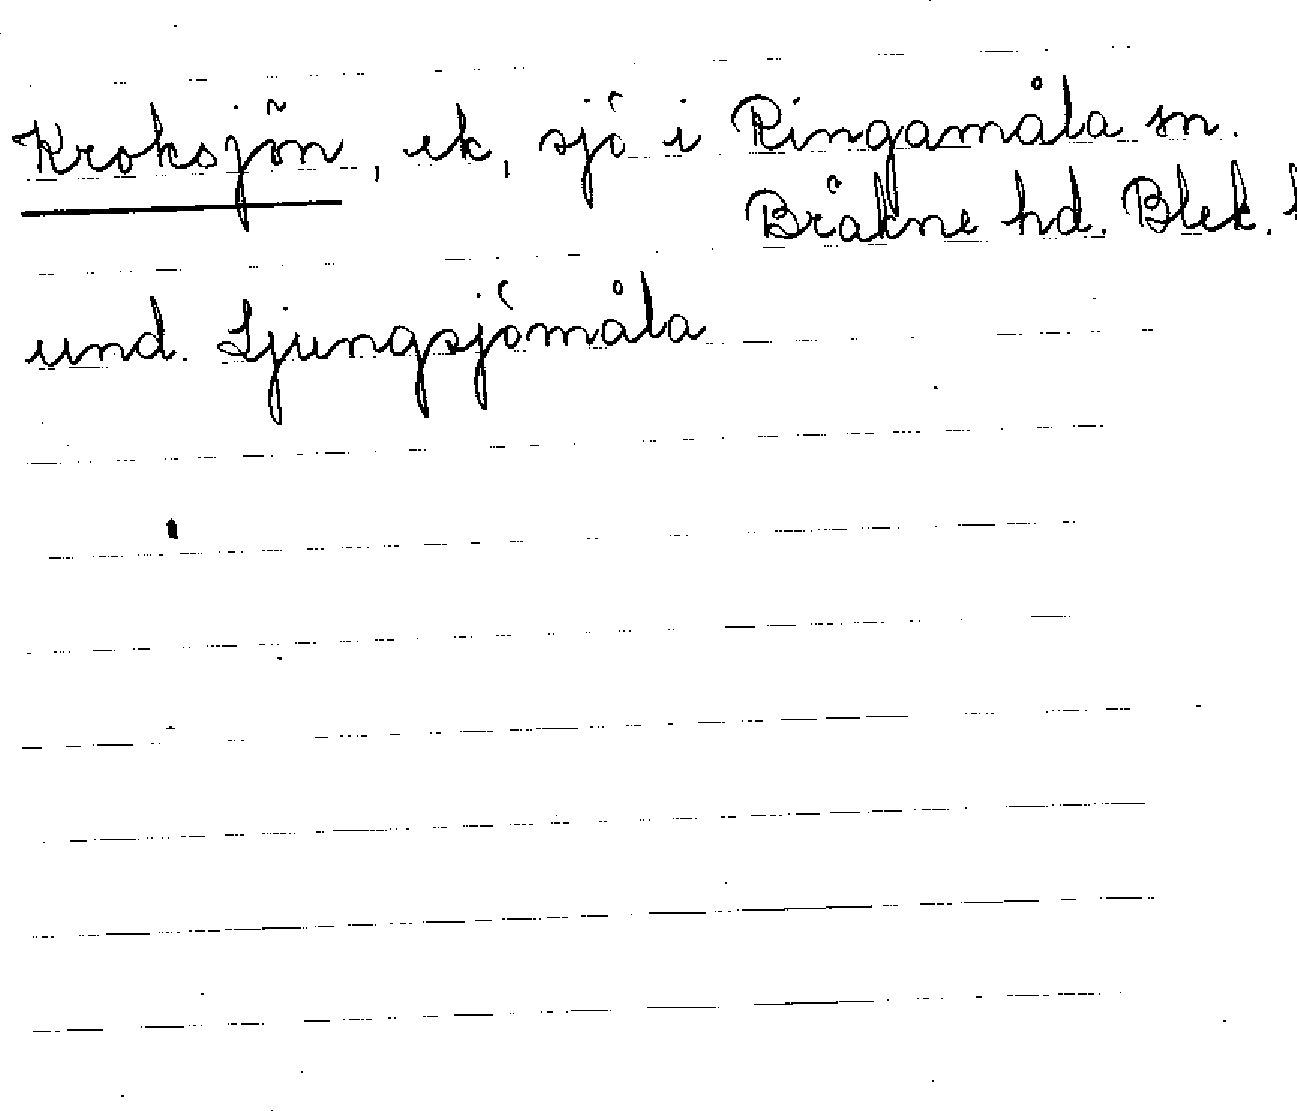 Kroksjön, ek, sjö i Ringamåla sn.
Bräkne hd. Blek.
und. Ljungsjömåla